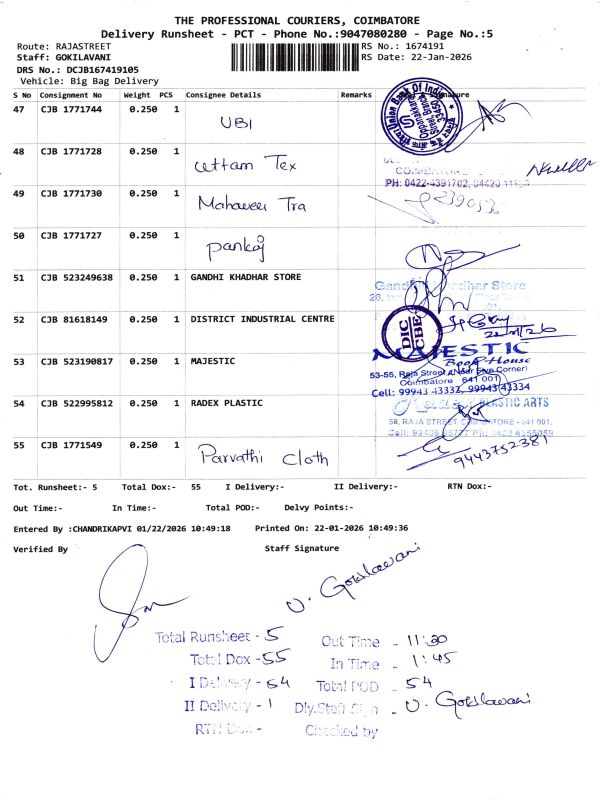 THE PROFESSIONAL COURIERS, COIMBATORE
Delivery Runsheet - PCT - Phone No.:9047080280 - Page No.:5
Route: RAJASTREET
RS No.: 1674191
Staff: GOKILAVANI
RS Date: 22-Jan-2026
DRS No.: DCJB167419105
Vehicle: Big Bag Delivery
S No Consignment No Weight PCS Consignee Details Remarks Signature
47 CJB 1771744 0.250 1 UBI
Union Bank Of India
48 CJB 1771728 0.250 1 Uttam Tex
COIMBATORE
PH: 0422-4391702
49 CJB 1771730 0.250 1 Mahaveer Tra
50 CJB 1771727 0.250 1 Pankaj
51 CJB 523249638 0.250 1 GANDHI KHADHAR STORE
Gandhi Khadhar Store
52 CJB 81618149 0.250 1 DISTRICT INDUSTRIAL CENTRE
DIC CBE
22/1/26
53 CJB 523190817 0.250 1 MAJESTIC
MAJESTIC
Book House
53-55, Raja Street (Near Five Corner)
Coimbatore 641 001
Cell: 99943 43332, 99943 43334
54 CJB 522995812 0.250 1 RADEX PLASTIC
PLASTIC ARTS
58, RAJA STREET, COIMBATORE - 641 001.
55 CJB 1771549 0.250 1 Parvathi Cloth
9443752381
Tot. Runsheet:- 5 Total Dox:- 55 I Delivery:- II Delivery:- RTN Dox:-
Out Time:- In Time:- Total POD:- Delvy Points:-
Entered By :CHANDRIKAPVI 01/22/2026 10:49:18 Printed On: 22-01-2026 10:49:36
Verified By Staff Signature
V. Gokilavani
Total Runsheet - 5 Out Time - 11:20
Total Dox - 55 In Time - 1:45
I Delivery - 54 Total POD - 54
II Delivery - 1 Dly.Staff Sign - V. Gokilavani
RTN Dox - Checked by